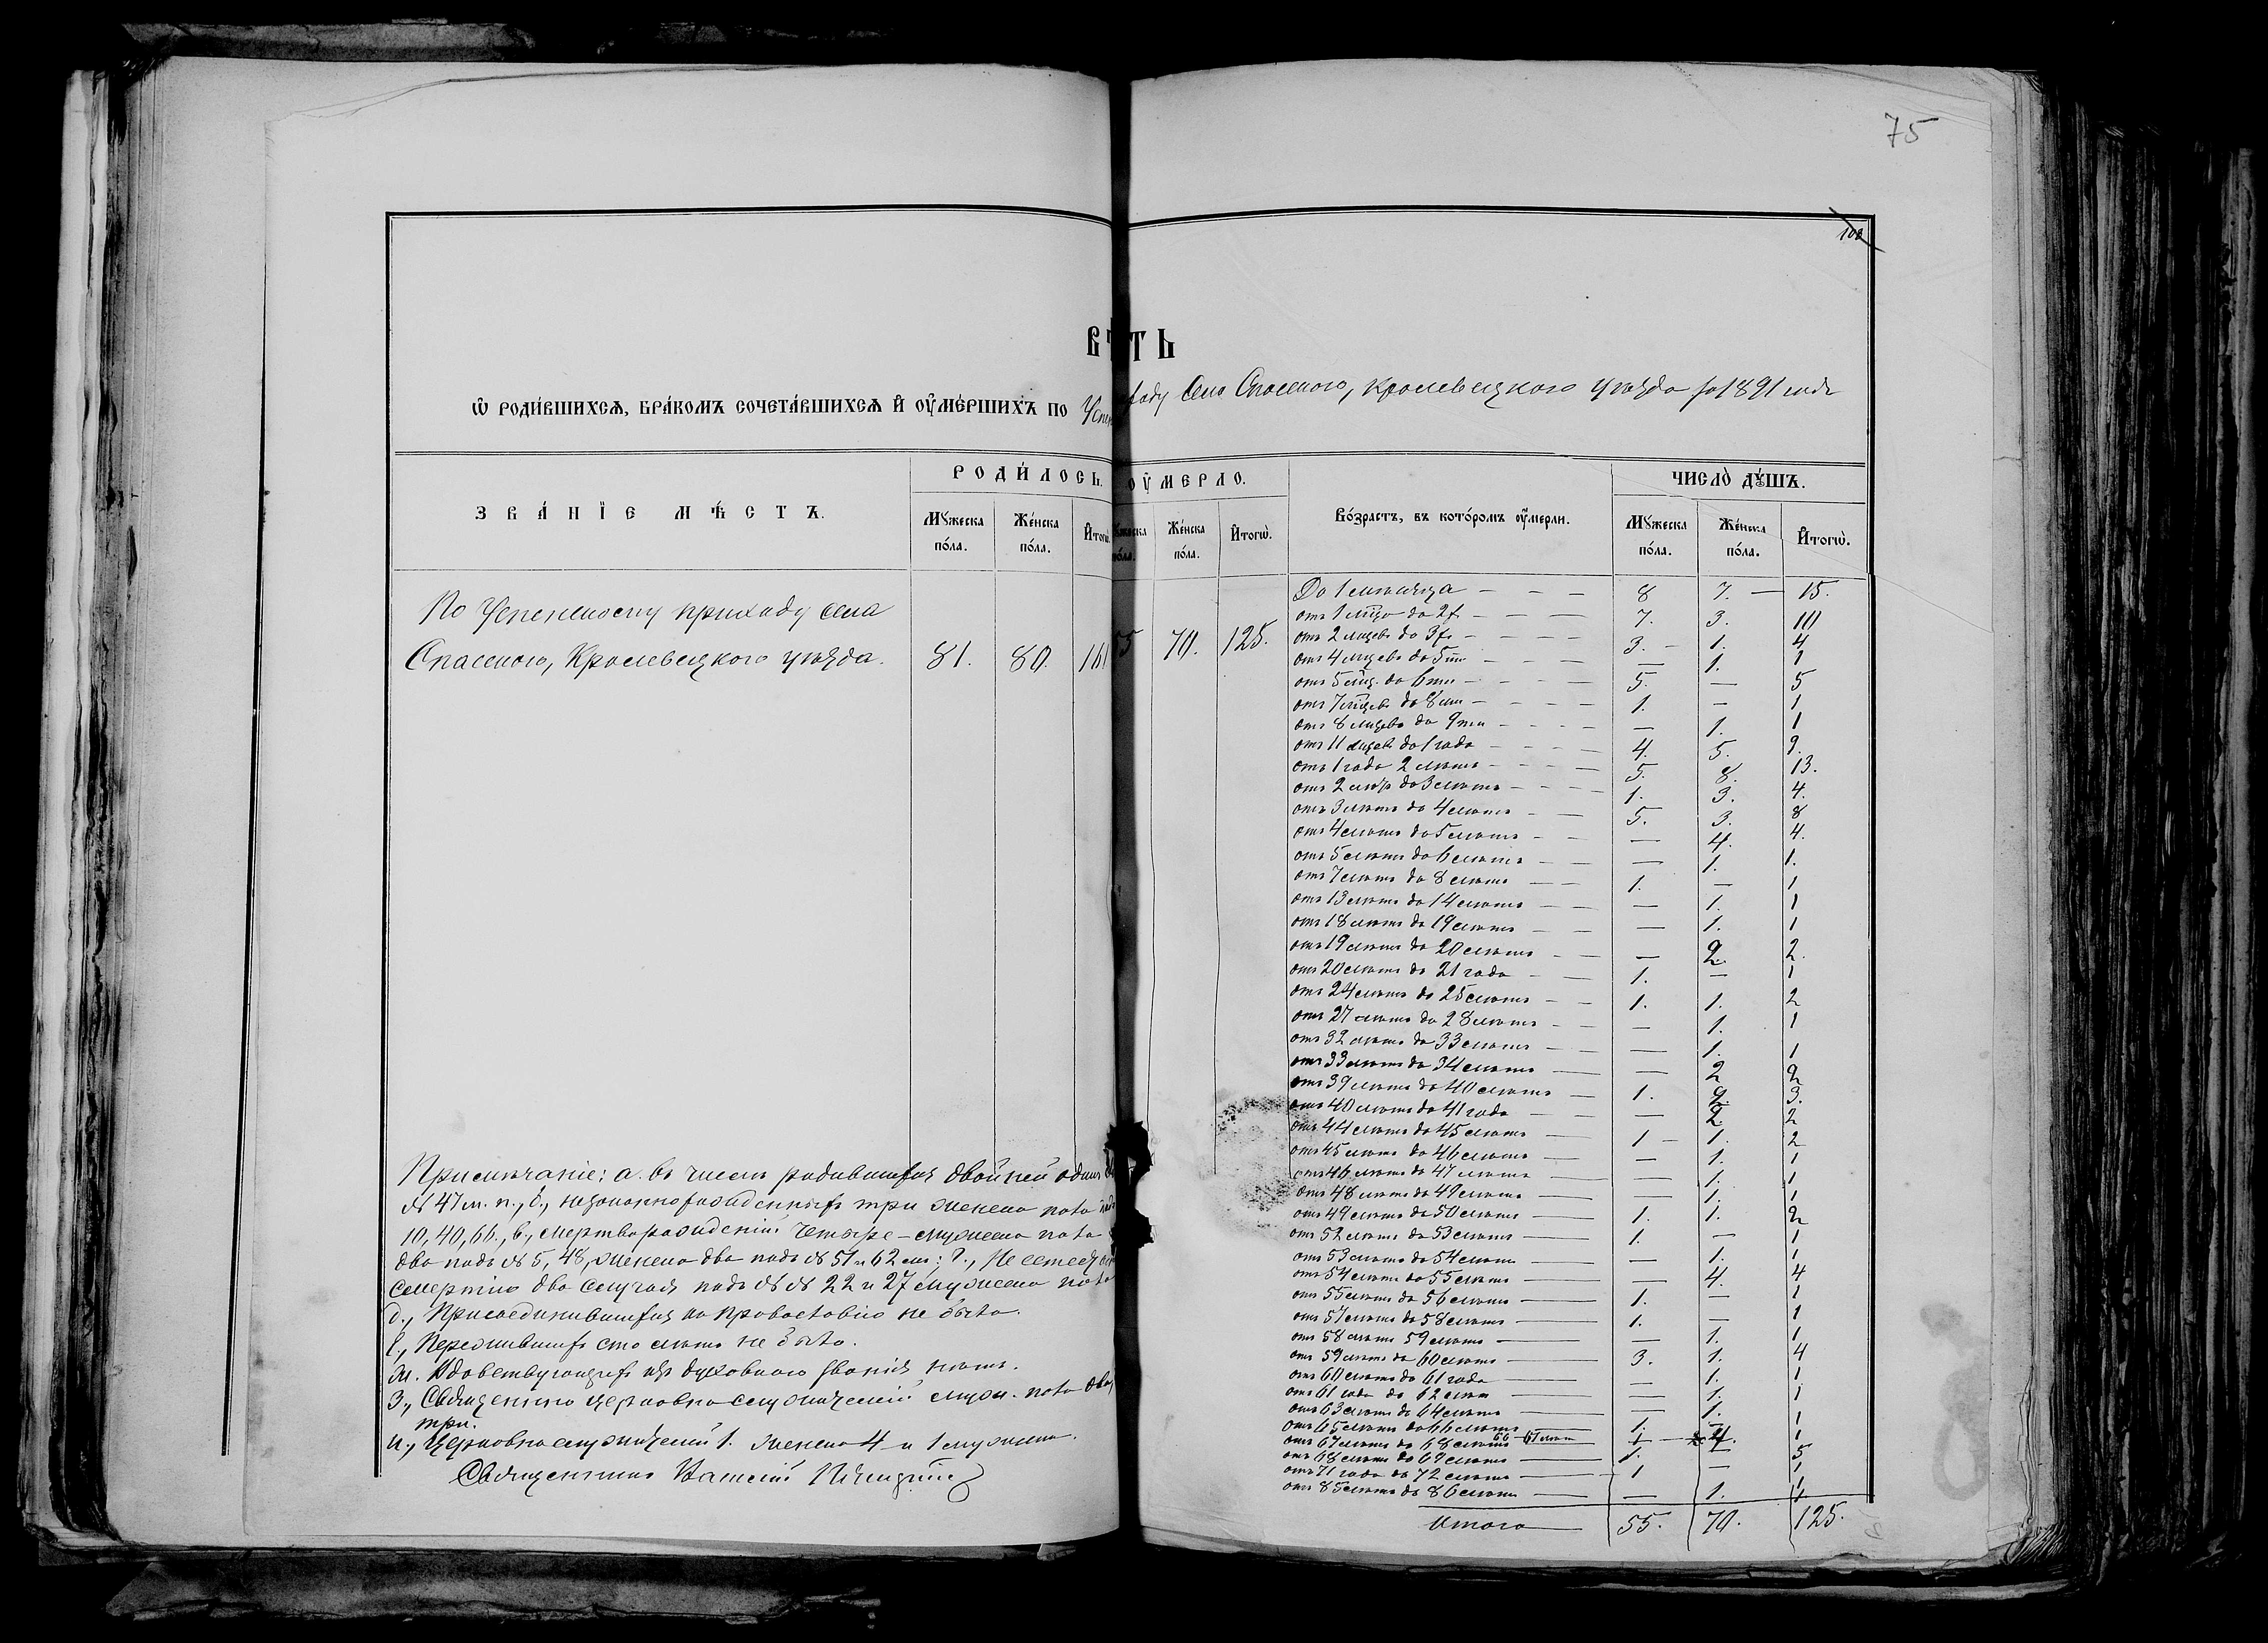 75
100
ВѢТЬ
Ѡ РОДИ́ВШИХСѦ, БРА́КОМЪ СОЧЕТА́ВШИХСѦ И҆ ОУ҆МЕ́РШИХЪ ПО Успен ходу Села Спасского, Кролевецкого уѣзда за 1891 годъ
ЗВА́НЇЕ МѢ́СТЪ.
РОДИ́ЛОСЬ.
ОУ҆МЕРЛО.
Во́зрастъ, въ кото́ромъ оу҆́мерли.
ЧИСЛО̀ ДꙊ́ШЪ.
Мꙋжеска по́ла.
Же́нска по́ла.
И҆тогѡ̀.
Мꙋжеска по́ла.
Же́нска по́ла.
И҆тогѡ̀.
Мꙋжеска по́ла.
Же́нска по́ла.
И҆тогѡ̀.
По Успенскому приходу села
Спасского, Кролевецкого уѣзда. 81. 80. 161 55 70. 125.
Примѣчаніе: а. въ числѣ родившихся двойней одинъ
№ 47 м. п., б., незаконнорожденныхъ три женска пола
10, 40, 66., в., мертворожденій четыре – мужеска пола
два подъ № 5, 48, женска два подъ № 51 и 62 ; г., Не естеств
смертію два случая подъ №№ 22 и 27 мужеска пола
д., Присоединившихся къ православію не было.
е., Пережившихъ сто лѣтъ не было.
ж. Вдовствующихъ изъ духовнаго званія нѣтъ.
з., Священно церковно служителей муж. пола два,
три.
и., Церковнослужителей 1. женска 4 и 1 мужеска.
Священникъ Василій
До 1 мѣсяца – – – 8 7. — 15.
отъ 1 мѣца до 2х – – – 7. 3. 10
отъ 2 мцевъ до 3хъ – – – 3. – 1. 4
отъ 4 мцевъ до 5ти – – – — 1. 1
отъ 5 мц. до 6ти – – – 5. — 5
отъ 7 мцевъ до 8ми – – – 1. – 1
отъ 8 мцевъ до 9ти – – – — 1. 1
отъ 11 мцевъ до 1 года – – – 4. 5. 9.
отъ 1 года 2 лѣтъ – – – 5. 8. 13.
отъ 2 лѣтъ до 3 лѣтъ – – – 1. 3. 4.
отъ 3 лѣтъ до 4 лѣтъ – – 5. 3. 8
отъ 4 лѣтъ до 5 лѣтъ – – — 4. 4.
отъ 5 лѣтъ до 6 лѣтъ – – — 1. 1.
отъ 7 лѣтъ до 8 лѣтъ – – 1. — 1
отъ 13 лѣтъ до 14 лѣтъ – – — 1. 1
отъ 18 лѣтъ до 19 лѣтъ – – — 1. 1
отъ 19 лѣтъ до 20 лѣтъ – – — 2. 2.
отъ 20 лѣтъ до 21 года – – 1. — 1
отъ 24 лѣтъ до 25 лѣтъ – – 1. 1. 2
отъ 27 лѣтъ до 28 лѣтъ – – — 1. 1
отъ 32 лѣтъ до 33 лѣтъ – – — 1. 1
отъ 33 лѣтъ до 34 лѣтъ — — 2 2
отъ 39 лѣтъ до 40 лѣтъ – 1. 2. 3.
отъ 40 лѣтъ до 41 года – – — 2 2
отъ 44 лѣтъ до 45 лѣтъ — 1 – 1. 2
отъ 45 лѣтъ до 46 лѣтъ — — 1. 1
отъ 46 лѣтъ до 47 лѣтъ — — 1. 1
отъ 48 лѣтъ до 49 лѣтъ — — 1. 1
отъ 49 лѣтъ до 50 лѣтъ — 1. 1. 2
отъ 52 лѣтъ до 53 лѣтъ — 1. — 1
отъ 53 лѣтъ до 54 лѣтъ — — 1. 1
отъ 54 лѣтъ до 55 лѣтъ — — 4. 4
отъ 55 лѣтъ до 56 лѣтъ — 1. — 1
отъ 57 лѣтъ до 58 лѣтъ — 1. — 1
отъ 58 лѣтъ 59 лѣтъ — — 1. 1
отъ 59 лѣтъ до 60 лѣтъ — 3. 1. 4
отъ 60 лѣтъ до 61 года — — 1. 1
отъ 61 года до 62 лѣтъ — — 1. 1
отъ 63 лѣтъ до 64 лѣтъ — — 1. 1
отъ 65 лѣтъ до 66 лѣтъ — 1. — 1
отъ 67 лѣтъ до 68 лѣтъ 66 – 67 лѣтъ 1 — 4. 5
отъ 68 лѣтъ до 69 лѣтъ — 1. — 1
отъ 71 года до 72 лѣтъ — 1 — 1
отъ 85 лѣтъ до 86 лѣтъ — — 1. 1
Итого — 55. 70. 125.